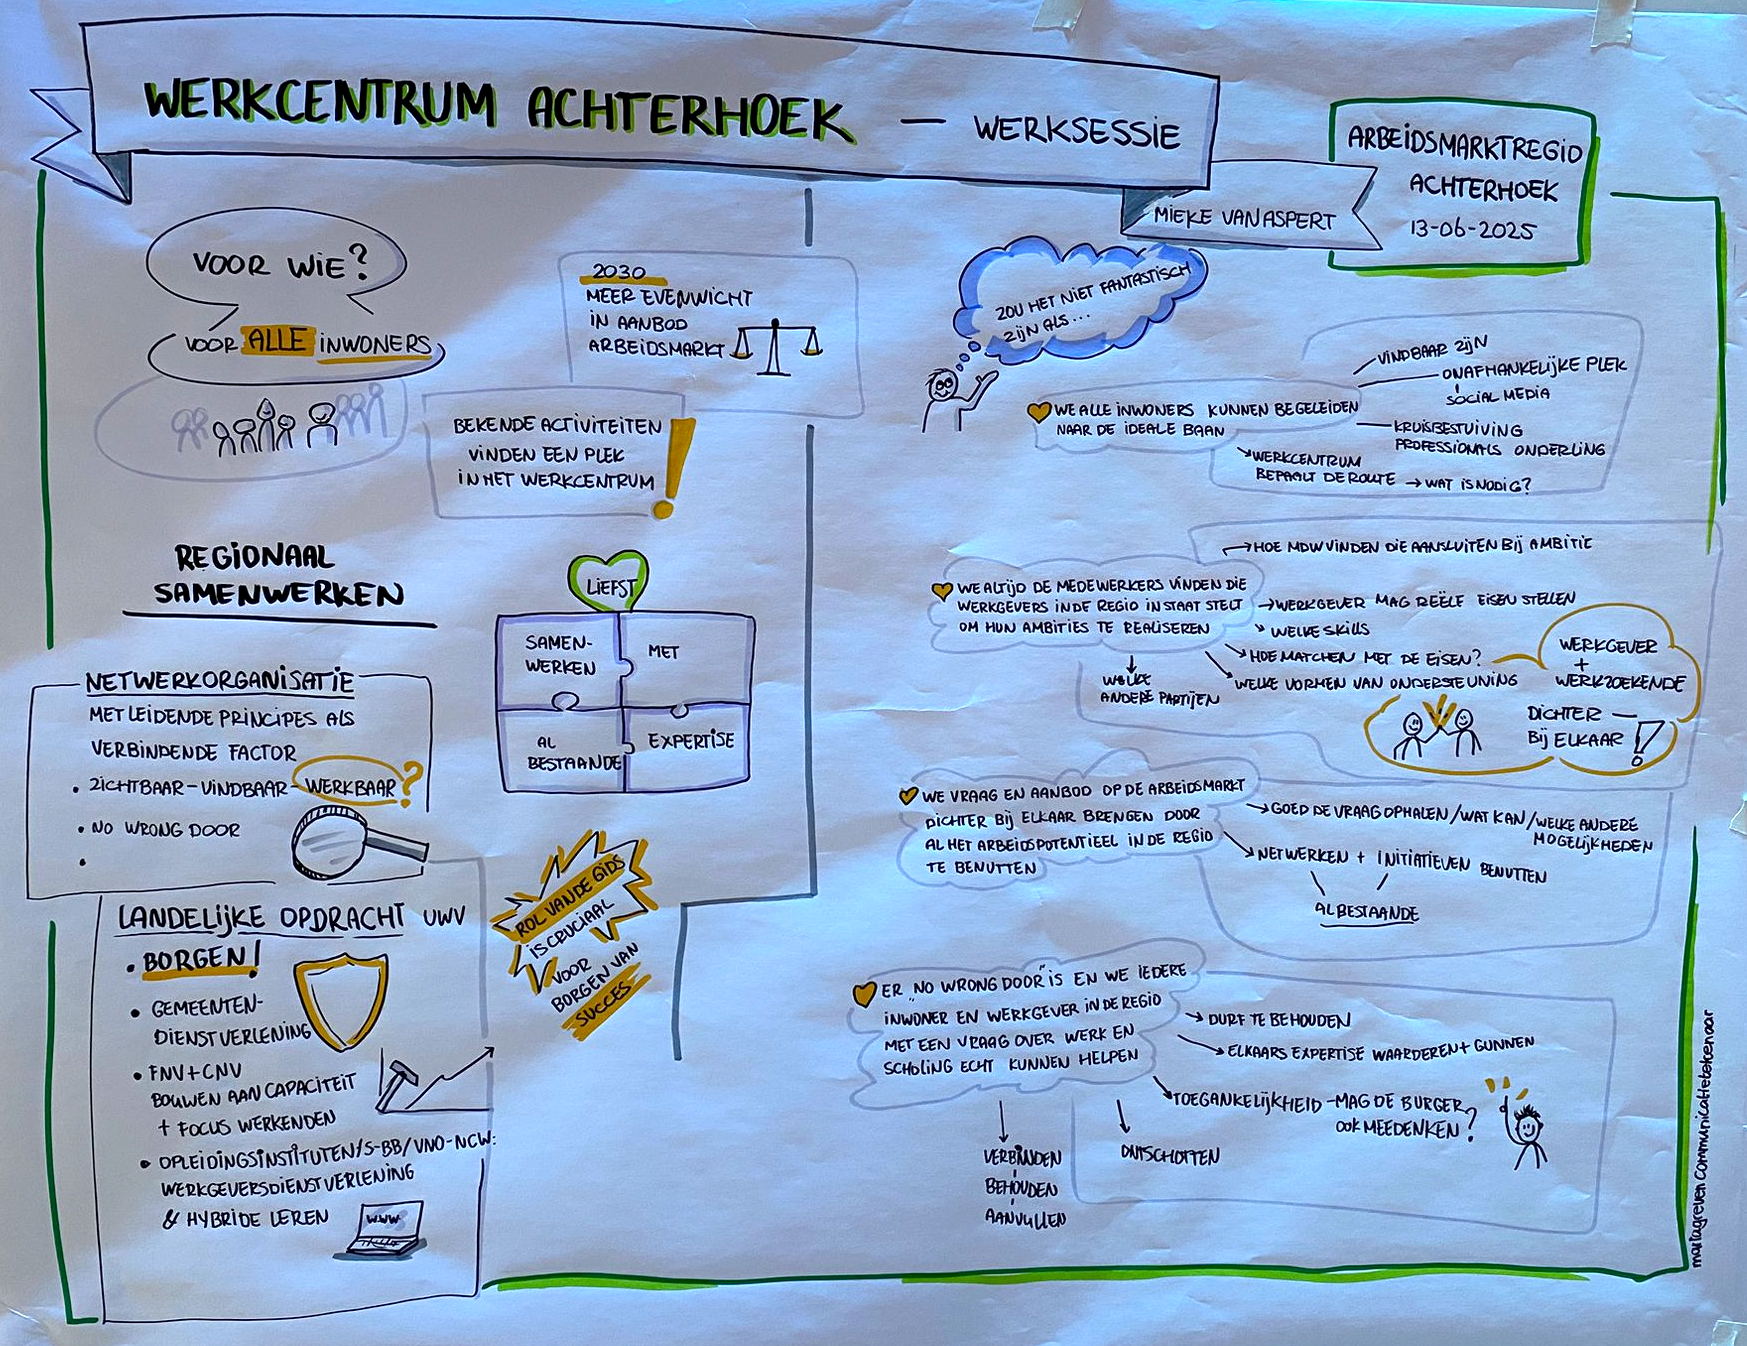 WERKCENTRUM ACHTERHOEK — WERKSESSIE
MIEKE VAN ASPERT
ARBEIDSMARKTREGIO
ACHTERHOEK
13-06-2025
VOOR WIE?
VOOR ALLE INWONERS
2030
MEER EVENWICHT
IN AANBOD
ARBEIDSMARKT
BEKENDE ACTIVITEITEN
VINDEN EEN PLEK
IN HET WERKCENTRUM
!
REGIONAAL
SAMENWERKEN
NETWERKORGANISATIE
MET LEIDENDE PRINCIPES ALS
VERBINDENDE FACTOR
• ZICHTBAAR – VINDBAAR – WERKBAAR?
• NO WRONG DOOR
•
LIEFST
SAMEN-
WERKEN
MET
AL
BESTAANDE
EXPERTISE
LANDELIJKE OPDRACHT UWV
• BORGEN!
• GEMEENTEN-
DIENSTVERLENING
• FNV + CNV
BOUWEN AAN CAPACITEIT
+ FOCUS WERKENDEN
• OPLEIDINGSINSTITUTEN/S-BB/VNO-NCW:
WERKGEVERSDIENSTVERLENING
& HYBRIDE LEREN
WWW
ROL VAN DE GIDS
IS CRUCIAAL
VOOR
BORGEN VAN
SUCCES
ZOU HET NIET FANTASTISCH
ZIJN ALS...
WE ALLE INWONERS KUNNEN BEGELEIDEN
NAAR DE IDEALE BAAN
VINDBAAR ZIJN
ONAFHANKELIJKE PLEK
SOCIAL MEDIA
KRUISBESTUIVING
PROFESSIONALS ONDERLING
WERKCENTRUM
BEPAALT DE ROUTE → WAT IS NODIG?
WE ALTIJD DE MEDEWERKERS VINDEN DIE
WERKGEVERS IN DE REGIO IN STAAT STELT
OM HUN AMBITIES TE REALISEREN
HOE MDW VINDEN DIE AANSLUITEN BIJ AMBITIE
WERKGEVER MAG REËLE EISEN STELLEN
WELKE SKILLS
HOE MATCHEN MET DE EISEN?
WELKE VORMEN VAN ONDERSTEUNING
WELKE
ANDERE PARTIJEN
WERKGEVER
+
WERKZOEKENDE
DICHTER —
BIJ ELKAAR !
WE VRAAG EN AANBOD OP DE ARBEIDSMARKT
DICHTER BIJ ELKAAR BRENGEN DOOR
AL HET ARBEIDSPOTENTIEEL IN DE REGIO
TE BENUTTEN
GOED DE VRAAG OPHALEN / WAT KAN / WELKE ANDERE
MOGELIJKHEDEN
NETWERKEN + INITIATIEVEN BENUTTEN
AL BESTAANDE
ER „NO WRONG DOOR" IS EN WE IEDERE
INWONER EN WERKGEVER IN DE REGIO
MET EEN VRAAG OVER WERK EN
SCHOLING ECHT KUNNEN HELPEN
DURF TE BEHOUDEN
ELKAARS EXPERTISE WAARDEREN + GUNNEN
TOEGANKELIJKHEID – MAG DE BURGER
OOK MEEDENKEN?
VERBINDEN
BEHOUDEN
AANVULLEN
ONTSCHOTTEN
mariagreven communicatietekenaar